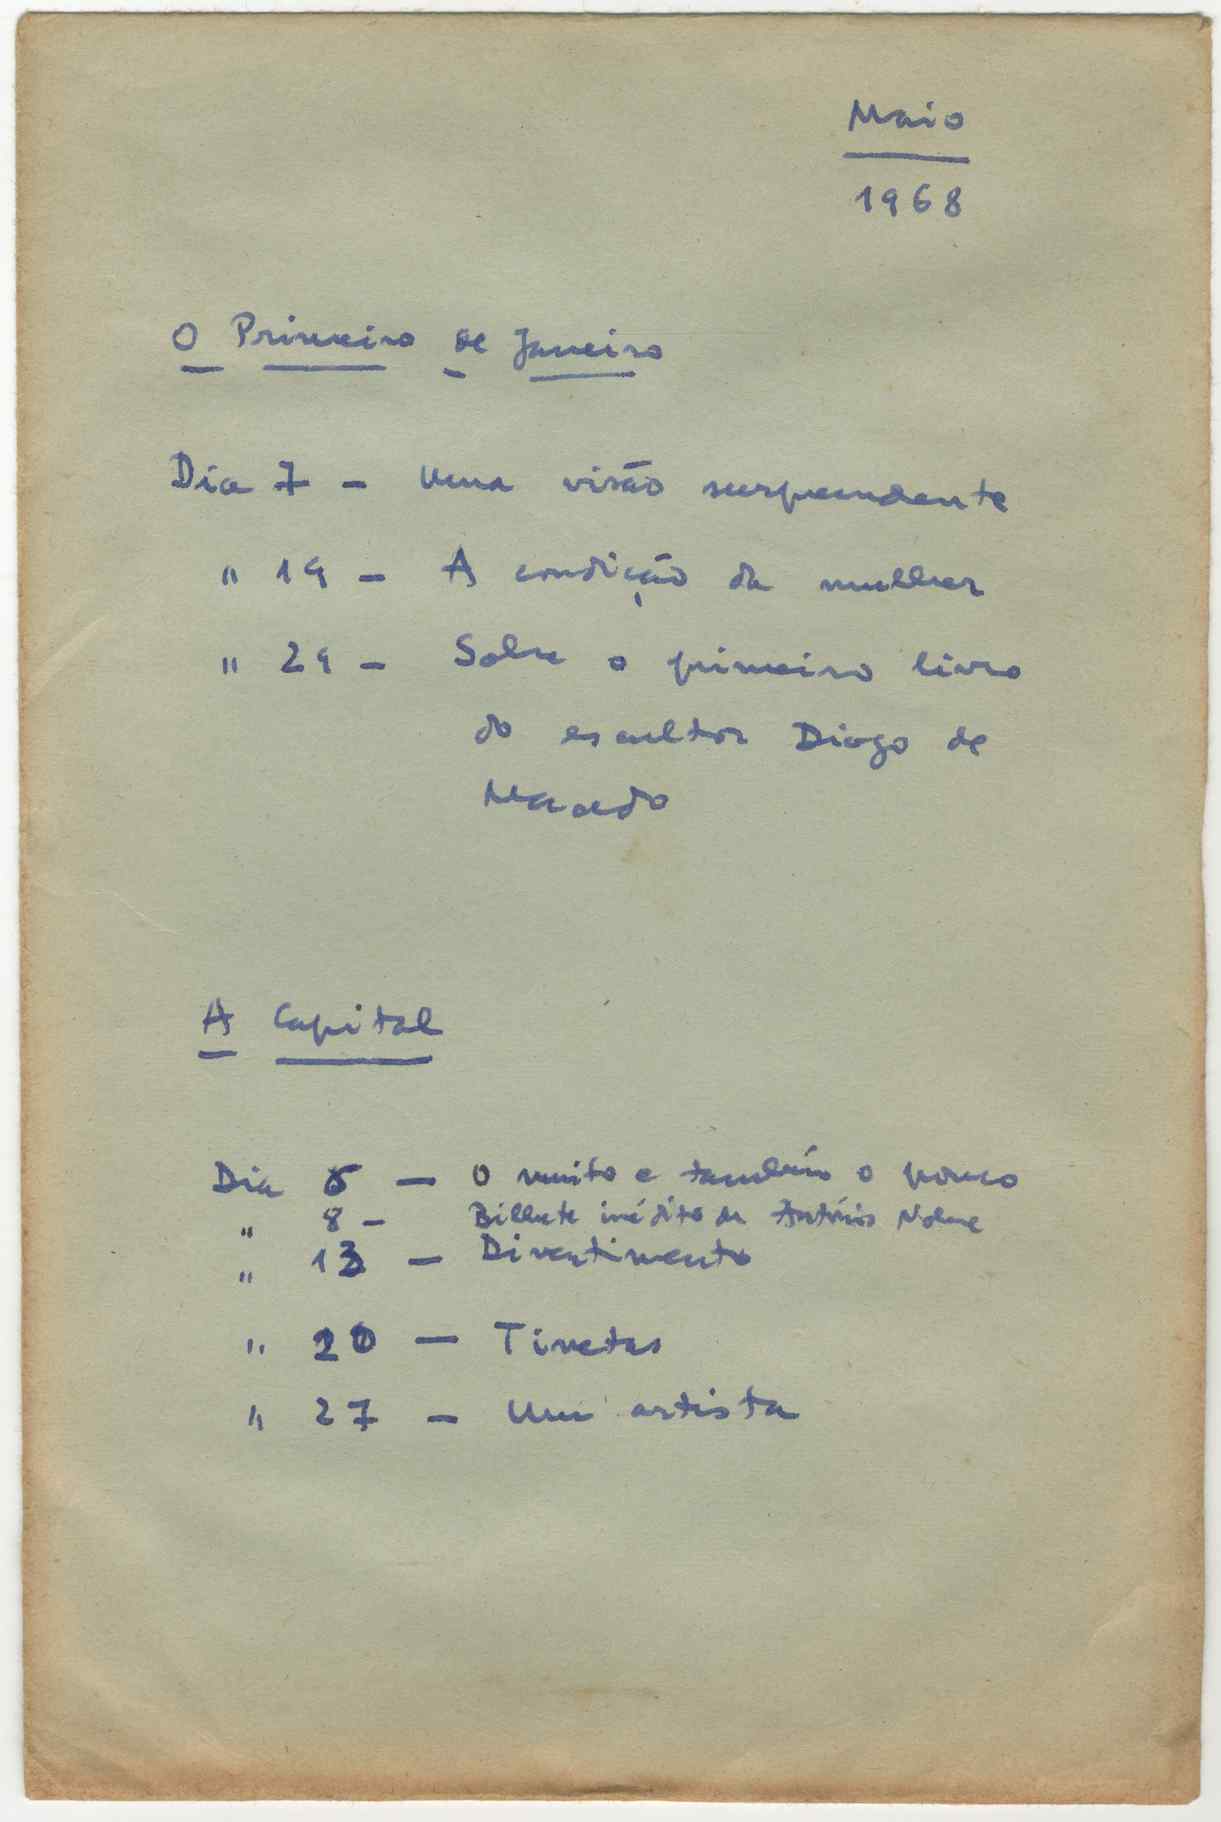 Maio
1968
O Primeiro de Janeiro
Dia 7 - Uma visão surpreendente
" 19 - A condição da mulher
" 29 - Sobre o primeiro livro
do escultor Diogo de
Macedo
A Capital
Dia 6 - O muito e também o pouco
" 8 - Bilhete inédito de António Nobre
" 13 - Divertimento
" 20 - Tinetas
" 27 - Um artista